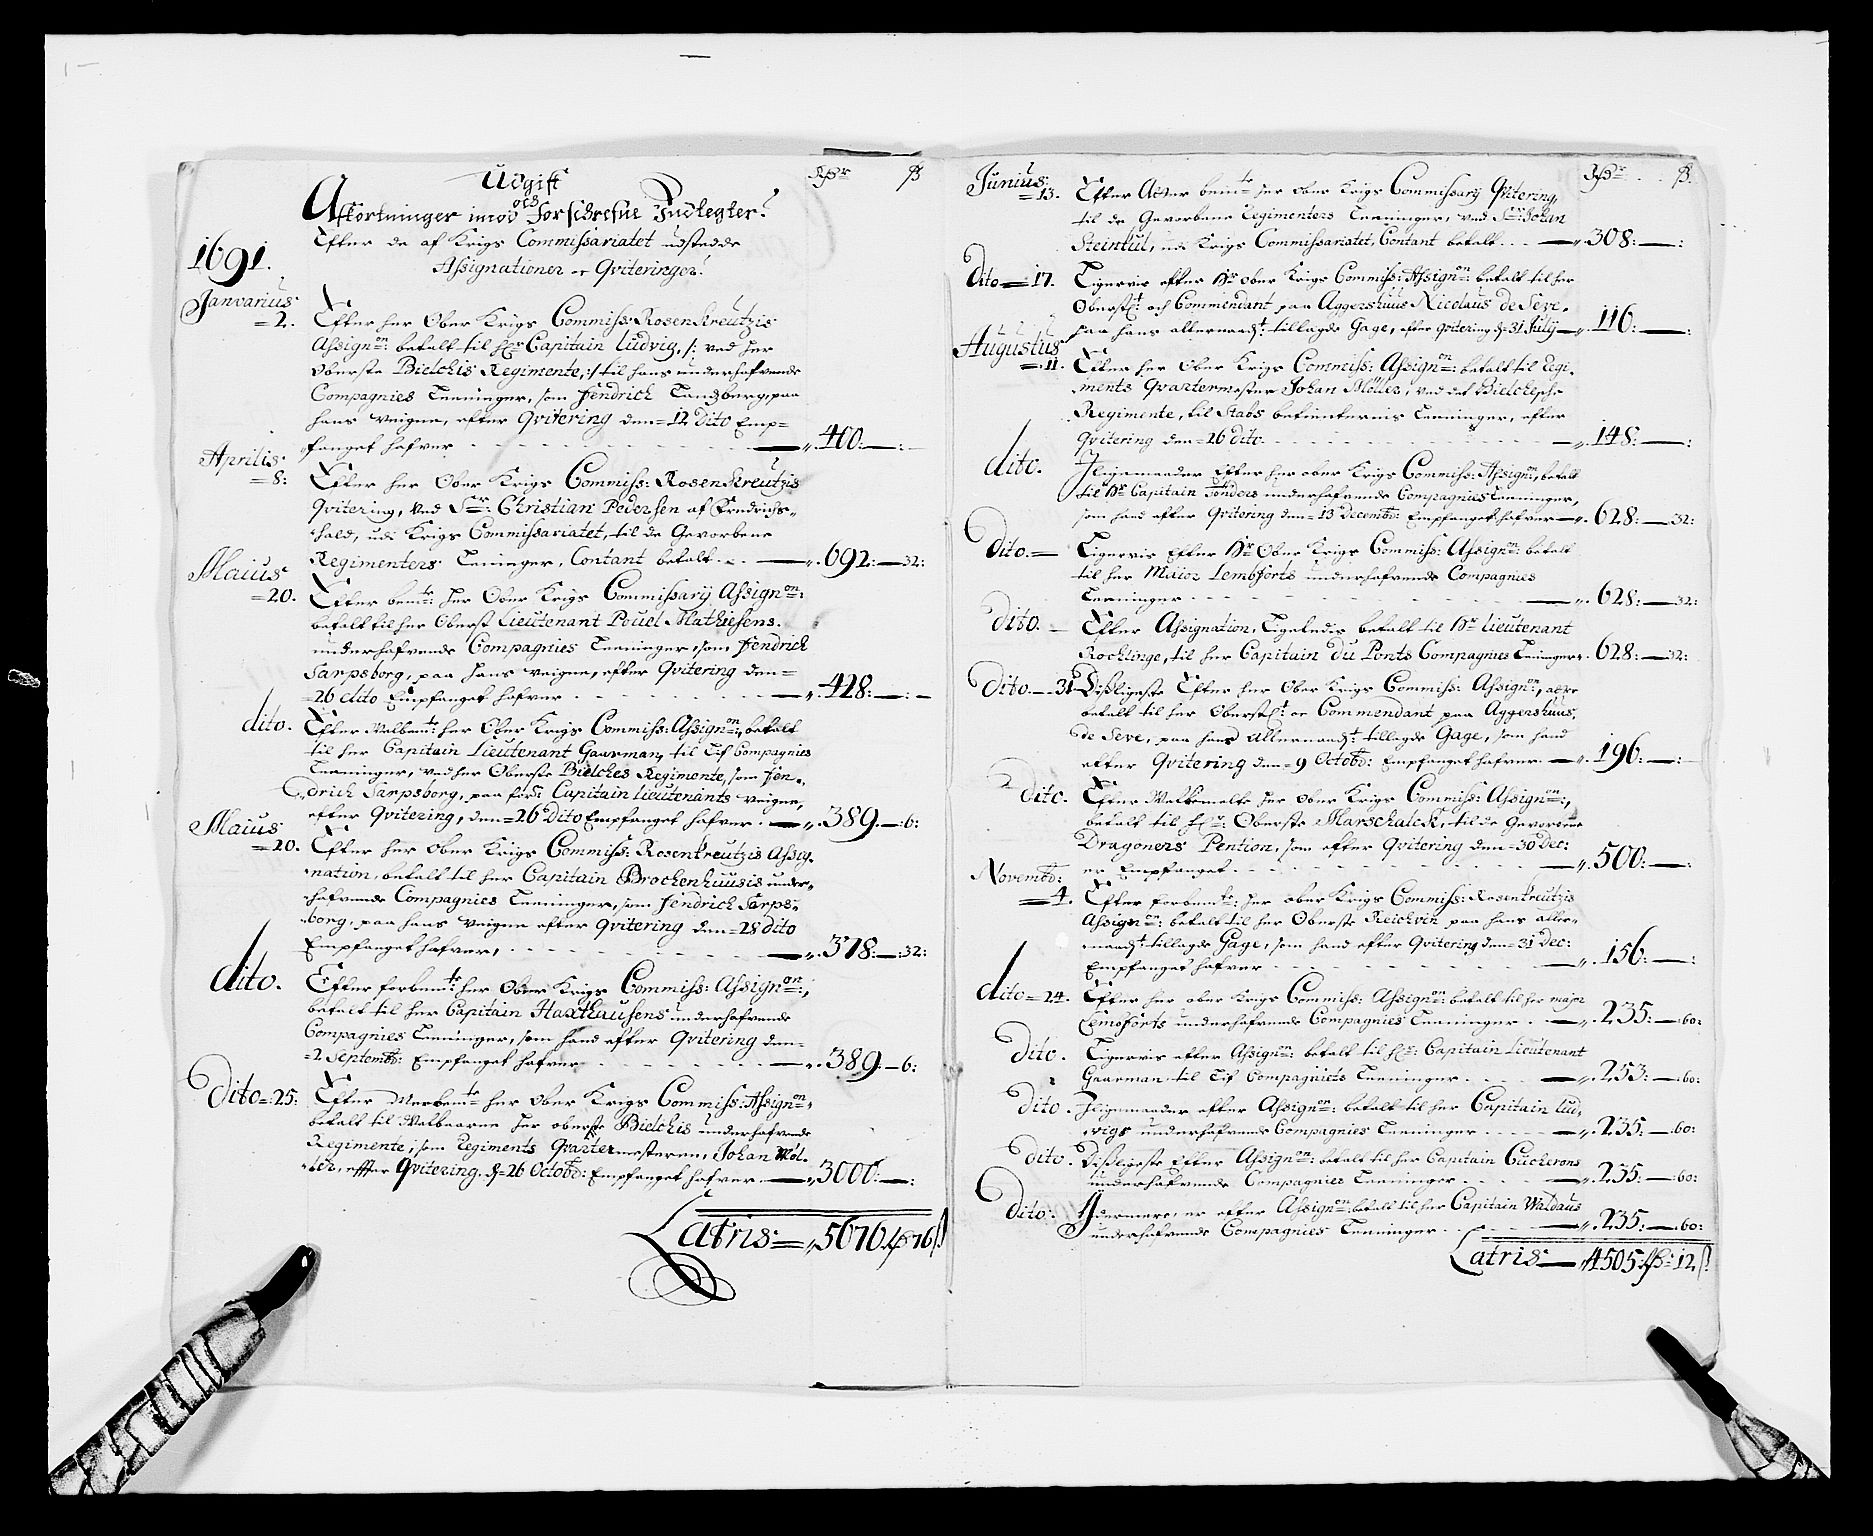 Udgift
och
Afkortninger imod Forschrefne Indtegter.
Rdr ß
1691.
Efter de af Krigs Commissariatet udstedde
Assignationer oc Qviteringer.
Janvarius
=2.
Efter her Ober Krigs Commiss: Rosenkreutzis
Assignon: betalt til hr Capitain Ludvig, /: ved her
Oberste Bielchis Regimente,:/ til hans underhafvende
Compagnies Tieninger, som Hendrich Tandsberg, paa
hans veigne, efter Qvitering den=12 Dito Emp=
fanget hafver - - - 400:—:
Aprilis:
=8:
Efter her Ober Krigs Commiss: Rosenkreutzis
Qvitering, ved Sr: Christian Pedersen af Fredrichs=
hald, udi Krigs Commissariatet, til de Gevorbene
Regimenters Teninger, Contant betalt - - 692:—32:
Maius
=20.
Efter bemte: her Ober Krigs Commissarij Assignon:
betalt til her Oberst Lieutenant Pouel Mathiesens.
underhafvende Compagnies Tieninger, som Hendrich
Sarpsborg, paa hans veigne, efter Qvitering den=
=26 dito Empfanget hafver - - - 428:—:—
dito.
Efter Velbemte her Ober Krigs Commiss: Assignon:, betalt
til her Capitain Lieutenant Gaarman, til Lif Compagnies
Tieninger, ved her Oberste Bielches Regimente, som Hen=
drich Sarpsborg, paa fords Capitain Lieutenants veigne,
efter Qvitering, den=26 Dito Empfanget hafver - 389.—6:
Maius
=20.
Efter her Ober Krigs Commiss: Rosenkreutzis Assig=
nation, betalt til her Capitain Brochenhuusis under=
hafvende Compagnies Tieninger, som Hendrich Sarps=
borg, paa hans veigne efter Qvitering den=28 dito
Empfanget hafver, - - - 378:—32:
dito.
Efter forbemte her Ober Krigs Commiss: Assignon:,
betalt til her Capitain Haxthausens underhafvende
Compagnies Tieninger, som hand efter Qvitering den=
=2 Septembr: Empfanget hafver - - - 389.—6:
Dito=25:
Efter Velbemte her Ober Krigs Commiss: Assignon:
betalt til Velbaarne her oberste Bielchis underhafvende
Regimente, som Regiments Qvartermesteren, Johan Møl=
ler, effter Qvitering, d=26 Octobr: Empfanget hafver - 3000:—:
Latris:= 5676 Rdr 76 ß
Junius:
=13.
Rdr - - ß
Efter Atter bemte her Ober Krigs Commissarij Qvitering,
til de Gevorbene Regimenters Tieninger, ved Sr: Johan
Steinkul, udi Krigs Commissariatet, Contant betalt - - 308:—:
Dito=17.
Ligervis efter Hr Ober Krigs Commiss: Assignon: betalt til her
Oberstlt och Commendant paa Aggershuus Nicolaus de Seve.
paa hans allernaadt: tillagde Gage, efter qvitering d=31 July 116:—:
Augustus
=11.
Efter her Ober Krigs Commiss: Assignon: betalt til Regi=
ments Qvartermester Johan Møller, ved det Bielchesche
Regimente, til Stabs betienternis Tieninger, efter
Qvitering den=26 dito - - - 148:—:
dito.
Iligemaader Efter her ober Krigs Commiss: Assignon:, betalt
til Hr Capitain Tønders underhafvende Compagnies Tieninger,
som hand efter Qvitering den=13 Decembr: Empfanget hafver 628:—32:
Dito.=
Ligervis Efter Hr Ober Krigs Commiss: Assignon: betalt
til her Maiior Lembforts underhafvende Compagnies
Tieninger - - - 628:—32:
dito.
Efter Assignation, Ligeledis betalt til Hr Lieutenant
Rochlinge, til her Capitain Du Ponts Compagnies Teninger 628:—32:
Dito.—31
Disligeste Efter her Ober Krigs Commiss: Assignon:, atter
betalt til her Oberstlt: oc Commendant paa Aggershuus,
de Seve, paa hans Allernaadt: tillagde Gage, som hand
efter Qvitering den=9 Octobr: Empfanget hafver 196:—:
dito.
Efter Velbemelte her Ober Krigs Commiss: Assignon:,
betalt til hr: Oberste Marschalck, til de Gevorbene
Dragoners Pention, som efter Qvitering den=30 Dec:
er Empfanget - - - 500:—:
Novembr:
=4.
Efter forbemte: her ober Krigs Commiss: Rosenkreutzis
Assignon: betalt til her Oberste Reichvin paa hans aller=
naadt: tillagde Gage, som hand efter Qvitering den=31 Dec:
Empfanget hafver - - - 156:—:
dito=24.
Efter her ober Krigs Commiss: Assignon: betalt til her major
Lemforts underhafvende Compagnies Tieninger - - 235:—60:
Dito.
Ligervis efter Assignon: betalt til hr: Capitain Lieutenant
Gaarman til Lif Compagniets Tieninger - - 253:—60:
dito.
Iligemaader efter Assignon: betalt til her Capitain Lud=
vigs underhafvende Compagnies Tieninger - - 235:—60:
dito.
Disligeste Efter Assignon: betalt til her Capitain Cucherons
underhafvende Compagnies Tieninger - - 235:—60:
Dito.
Ydermere, er efter Assignon: betalt til her Capitain Waldaus
underhafvende Compagnies Tieninger - - 235:—60:
Latris:— 4505 Rdr: 12 ß